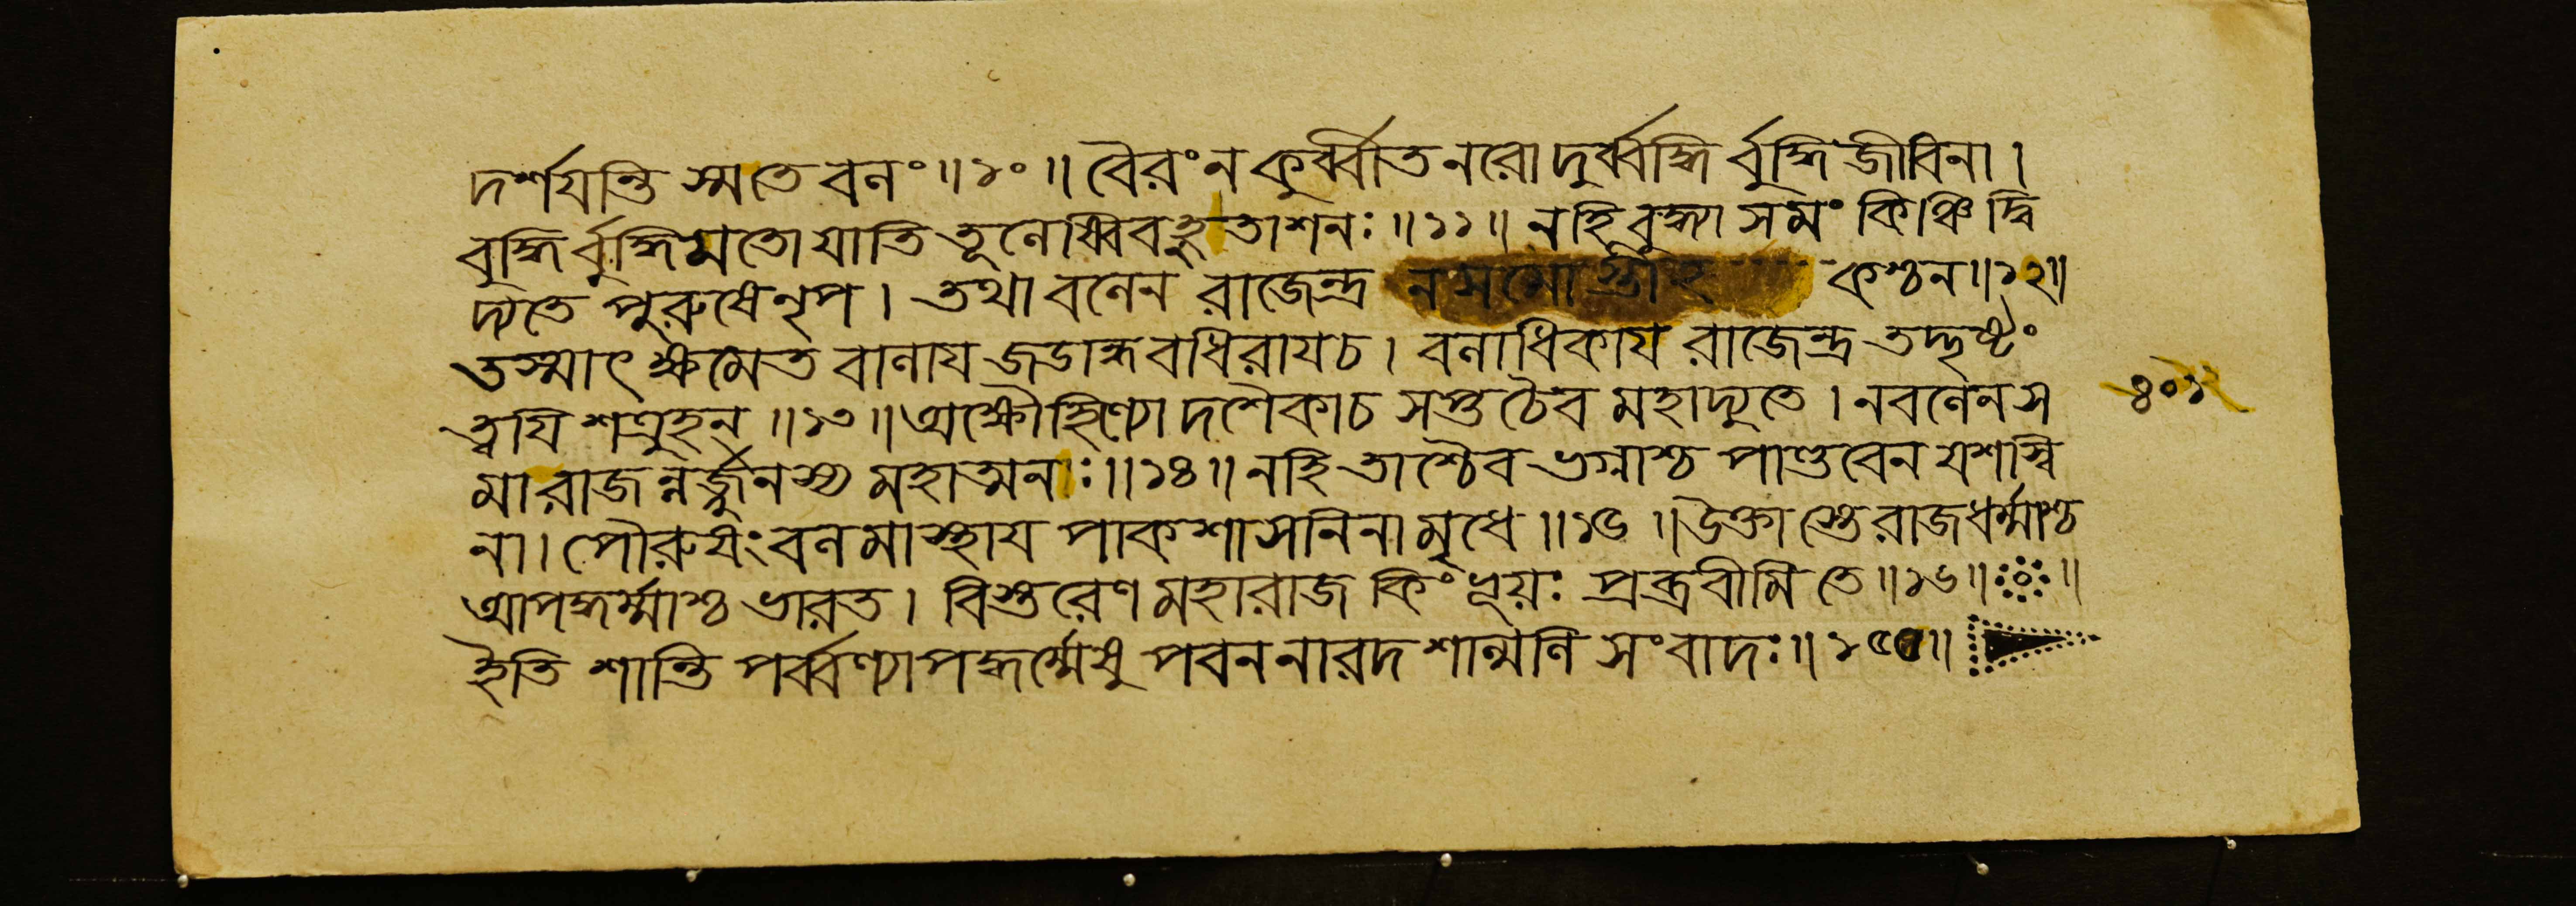 দর্শযন্তি স্মতে বনং ॥ ১০ ॥ বৈরং ন কুর্ব্বীত নরো দুর্ব্বুদ্ধি র্বুদ্ধি জীবিনা ।
বুদ্ধি র্বুদ্ধিমতো যাতি তূনেষ্বিব হুতাশনঃ ॥ ১১ ॥ নহি বুদ্ধ্যা সমং কিঞ্চি দ্বি
দ্যতে পুরুষে নৃপ । তথা বনেন রাজেন্দ্র ন সমোস্তীহ কশ্চন ॥ ১২ ॥
তস্মাৎ ক্ষমেত বানায জডান্ধ বধিরায চ । বনাধিকায রাজেন্দ্র তদ্দৃষ্টং
ত্বযি শত্রুহন্ ॥ ১৩ ॥ অক্ষৌহিণ্যো দশৈকা চ সপ্ত চৈব মহাদ্যুতে । ন বনেন স
মা রাজন্নর্জ্জুনস্য মহাত্মনঃ ॥ ১৪ ॥ নহি তাশ্চৈব ভগ্নাশ্চ পাণ্ডবেন যশস্বি
না । পৌরুষং বনমাস্থায পাকশাসনিনা মৃধে ॥ ১৫ ॥ উক্তাস্তে রাজধর্ম্মাশ্চ
আপদ্ধর্ম্মাশ্চ ভারত । বিস্তরেণ মহারাজ কিং ভূয়ঃ প্রব্রবীমি তে ॥ ১৬ ॥ ॥
ইতি শান্তি পর্ব্বণ্যাপদ্ধর্ম্মেষু পবন নারদ শাল্মনি সংবাদঃ ॥
৪০১